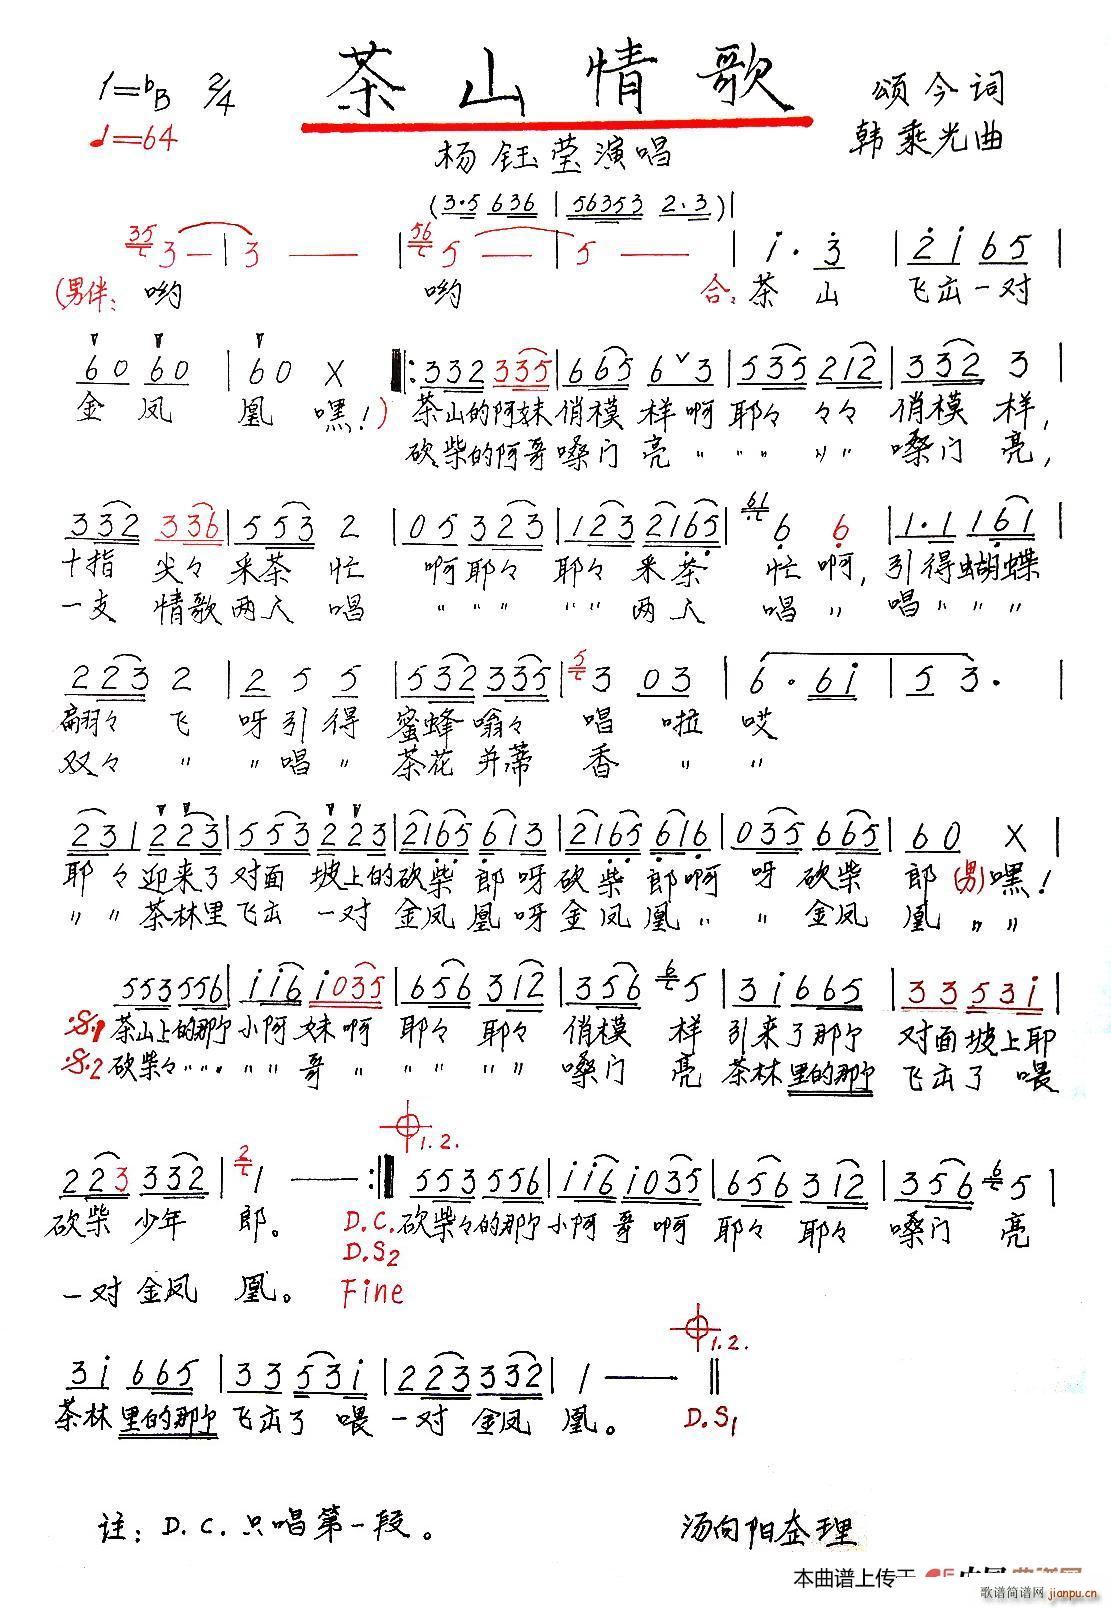 茶山情歌
1=♭B 2/4
颂今词
♩=64
韩乘光曲
杨钰莹演唱
(3·5 636 | 56353 2·3)|
35 3 — | 3 — — | 56 5 — | 5 — — | i · 3 | 2 i 6 5 |
(男伴: 哟 哟 合: 茶 山 飞出一对
60 60 | 60 X ‖: 332 335 | 665 6ˇ3 | 535 212 | 332 3 |
金 凤 凰 嘿!) 茶山的阿妹 俏模 样啊 耶々 々々 俏模 样,
砍柴的阿哥 嗓门 亮 〃 〃 〃 〃 〃 嗓门 亮,
332 336 | 553 2 | 05 323 | 123 2165 | 61 6 6 | 1·1 161 |
十指 尖々 采茶 忙 啊 耶々 耶々 采茶 忙 啊, 引得蝴蝶
一支 情歌 两人 唱 〃 〃 〃 〃 〃 两人 唱 〃 唱 〃 〃 〃
223 2 | 2 5 5 | 532 335 | 5 3 03 | 6 · 6i | 5 3· |
翩々 飞 呀 引 得 蜜蜂 嗡々 唱 啦 哎
双々 〃 〃 唱 〃 茶花 并蒂 香 〃 〃
23 1 223 | 553 223 | 2165 613 | 2165 616 | 035 665 | 60 X |
耶 々 迎来了 对面 坡上的 砍柴 郎 呀 砍柴 郎 啊 呀 砍柴 郎 (男)嘿!
〃 〃 茶林里 飞出 一对 金凤 凰 呀 金凤 凰 〃 〃 金凤 凰 〃 〃
553 556 | ii6 i035 | 656 312 | 356 6 5 | 3i 665 | 33 53i |
𝄋1 茶山上的那个 小阿 妹 啊 耶々 耶々 俏模 样 引来了那个 对面坡上耶
𝄋2 砍柴々 〃 〃 〃 〃 〃 哥 〃 〃 〃 〃 〃 嗓门 亮 茶林里的那个 飞出了 喂
1.2.
223 332 | 2 1 — :‖ 553 556 | ii6 i035 | 656 312 | 356 6 5 |
砍柴 少年 郎。 D.C. 砍柴々的那个 小阿哥 啊 耶々 耶々 嗓门 亮
D.S2
一对 金凤 凰。 Fine
1.2.
3i 665 | 33 53i | 223 332 | 1 — ‖
茶林里的那个 飞出了 喂 一对 金凤 凰。 D.S1
注: D.C.只唱第一段。 汤向阳整理
本曲谱上传于
歌谱简谱网 jianpu.cn